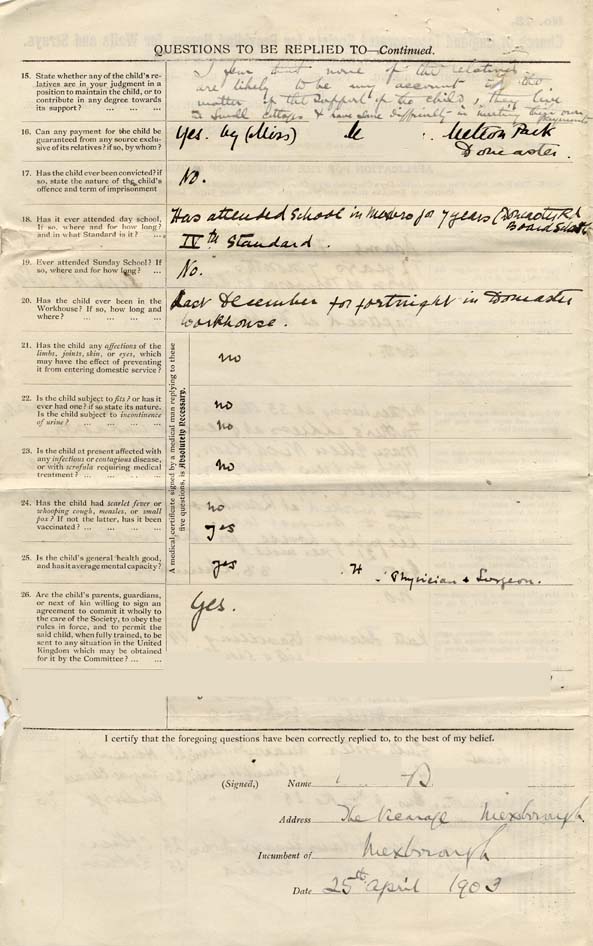 QUESTIONS TO BE REPLIED TO—Continued.
15. State whether any of the child's re-
latives are in your judgment in a
position to maintain the child, or to
contribute in any degree towards
its support? ... ... ...
I fear that none of the relatives
are likely to be any account in the
matter of the support of the child, they live
in small cottages & have some difficulty in meeting their own
payments
16. Can any payment for the child be
guaranteed from any source exclu-
sive of its relatives? if so, by whom?
Yes. by (Miss) M Melton Park
Doncaster.
17. Has the child ever been convicted? if
so, state the nature of the child's
offence and term of imprisonment
No.
18. Has it ever attended day school,
If so, where and for how long?
and in what Standard is it? ...
Has attended School in Mexbro for 7 years (Doncaster Rd
Board School)
IVth Standard.
19. Ever attended Sunday School? If
so, where and for how long? ...
No.
20. Has the child ever been in the
Workhouse? If so, how long and
where? ... ... ...
Last December for fortnight in Doncaster
Workhouse.
A medical certificate signed by a medical man replying to these
five questions, is Absolutely Necessary.
21. Has the child any affections of the
limbs, joints, skin, or eyes, which
may have the effect of preventing
it from entering domestic service?
no
22. Is the child subject to fits? or has it
ever had one? if so state its nature.
Is the child subject to incontinence
of urine? ... ... ...
no
no
23. Is the child at present affected with
any infectious or contagious disease,
or with scrofula requiring medical
treatment? ... ... ...
no
24. Has the child had scarlet fever or
whooping cough, measles, or small
pox? If not the latter, has it been
vaccinated? ... ... ...
no
yes
25. Is the child's general health good,
and has it average mental capacity?
yes
H Physician & Surgeon.
26. Are the child's parents, guardians,
or next of kin willing to sign an
agreement to commit it wholly to
the care of the Society, to obey the
rules in force, and to permit the
said child, when fully trained, to be
sent to any situation in the United
Kingdom which may be obtained
for it by the Committee? ... ...
Yes.
I certify that the foregoing questions have been correctly replied to, to the best of my belief.
(Signed,) Name B
Address The Vicarage Mexborough
Incumbent of Mexborough
Date 25th April 1903